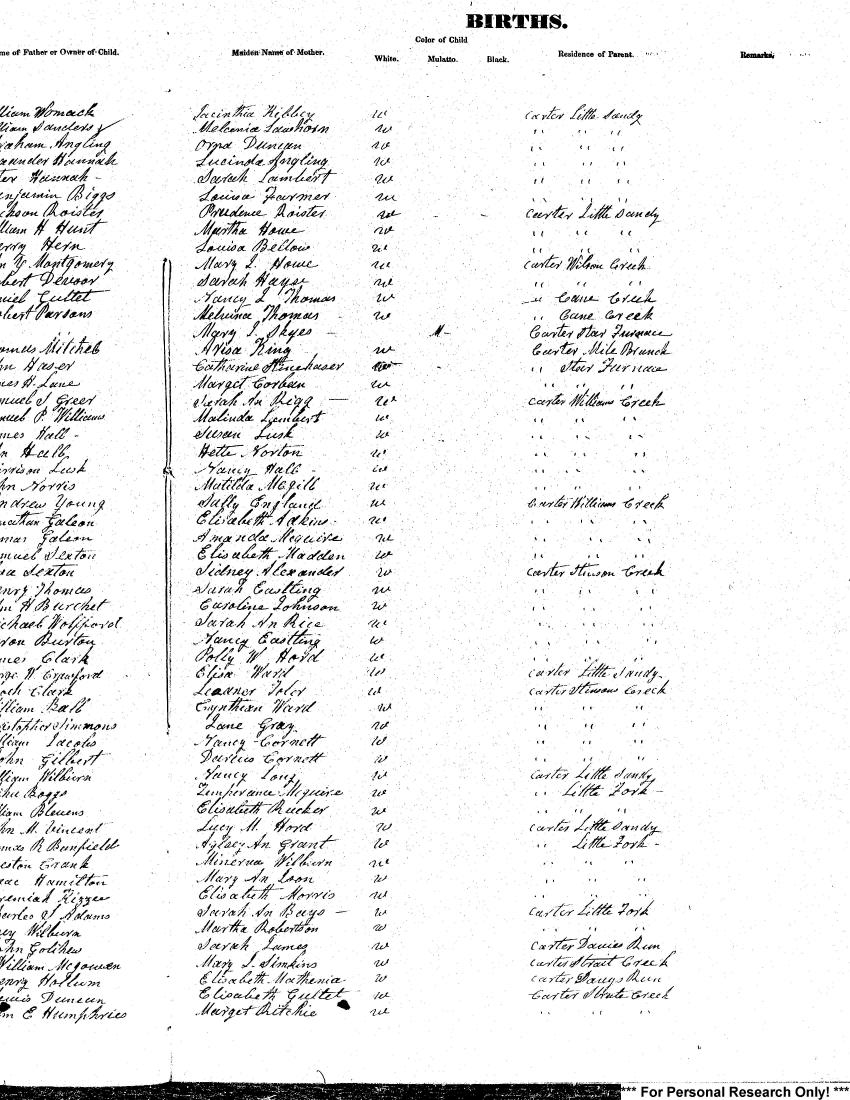 BIRTHS.
Color of Child
me of Father or Owner of Child. Maiden Name of Mother. White. Mulatto. Black. Residence of Parent. Remarks.
lliam Womack Jacinthia Kibbey w Carter Little Sandy
lliam Sanders Melcenia Lawhorn w " " "
raham Angling Orpa Duncan w " " "
xander Hannah Lucinda Angling w " " "
ter Hannah - Sarah Lambert w " " "
enjamin Biggs Louisa Farmer w " " "
ckson Roister Prudence Roister w Carter Little Sandy
lliam H Hunt Martha Howe w " " "
erry Hern Louisa Bellow w " " "
n Y Montgomery Mary J. Howe w Carter Wilson Creek
bert Devoor Sarah Hayse w " " "
niel Cultet Nancy J Thomas w " Cane Creek
obert Parsons Melvina Thomas - w " Cane Creek
" Mary J. Skyes - M - Carter Star Furnace
omas Mitchel Arisa King w Carter Mile Branch
hn Haser Catharine Stinehaser w " Star Furnace
mes H. Lane Marget Corban w " " "
muel J Greer Sarah An Bigg - w Carter Williams Creek
muel P. Williams Malinda Lambert w " " "
mes Hall - Susan Lusk w " " "
n Hall Hette Norton w " " "
rrison Lusk Nancy Hall - w " " "
hn Norris Matilda Mcgill w " " "
ndrew Young Sally England w Carter Williams Creek
nathan Galeon Elisabeth Adkins - w " " "
mas Galeon Amanda Mcguire w " " "
muel Sexton Elisabeth Madden w " " "
sa Sexton Sidney Alexander w Carter Stinson Creek
enry Thomas Sarah Eastling w " " "
hn H Burchet Caroline Johnson w " " "
ichael Wolfford Sarah An Rice w " " "
ron Burton Nancy Eastling w " " "
mes Clark Polly W. Hord w " " "
rge W. Crawford Elisa Ward w Carter Little Sandy
och Clark Leaner Toler w Carter Stinsons Creek
lliam Ball Cynthian Ward w " " "
ristopher Simmons Jane Gray w " " "
lliam Jacobs Nancy Cornett w " " "
ohn Gilbert Darcus Cornett w " " "
lliam Wilburn Nancy Long w Carter Little Sandy
hn Boggs Temperance Mcguire w " Little Fork -
lliam Blevens Elisabeth Rucker w " " "
hn M. Vincent Lucy M. Hord w Carter Little Sandy
mas R Banfield An Grant w Little Fork -
eston Crank Minerva Wilburn w " " "
aac Hamilton Mary An Ison w " " "
remiah Kizzee Elisabeth Morris w " " "
harles J Adams Sarah An Bays - w Carter Little Fork
ey Wilburn Martha Robertson w " " "
ohn Golihew Sarah James w Carter Davies Run
William Mcgowen Mary J. Simkins w Carter Strait Creek
enry Hollum Elisabeth Mathenia w Carter Davys Run
ewis Duncan Elisabeth Gultet w Carter Strate Creek
m E Humphries Marget Ritchie w " " "
*** For Personal Research Only! ***